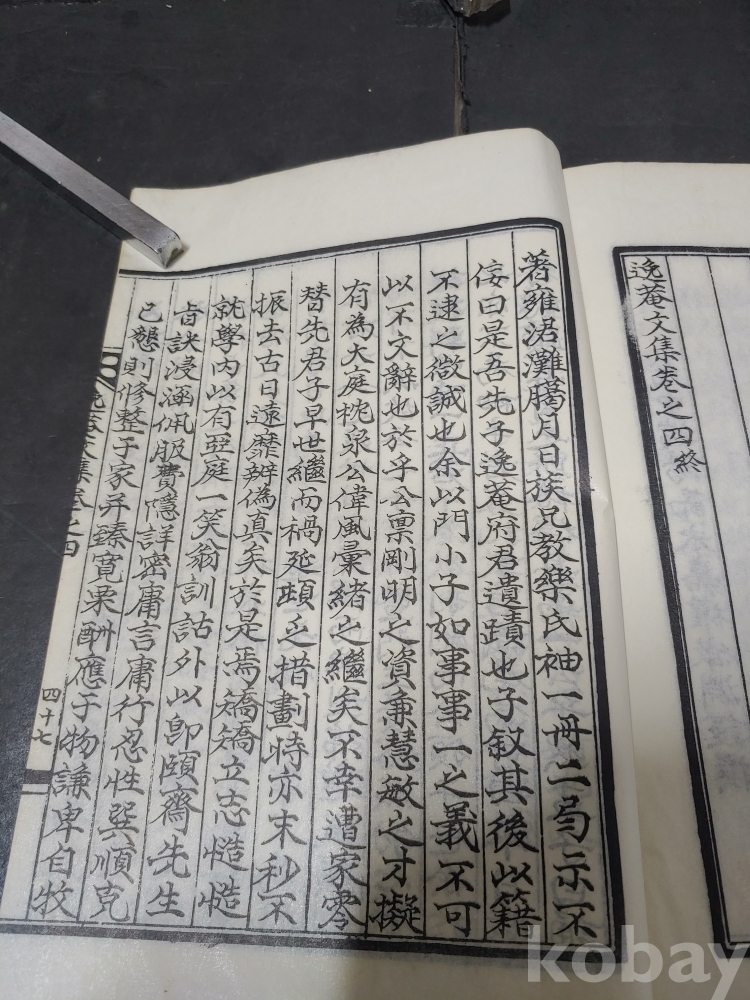 逸菴文集卷之四終
著雍涒灘臈月日族兄教樂氏袖一冊二勻示不
佞曰是吾先子逸菴府君遺蹟也子叙其後以籍
不逮之微誠也余以門小子如事事一之義不可
以不文辭也於乎公禀剛明之資兼慧敏之才擬
有為大庭枕泉公偉風彙緒之繼矣不幸遭家零
替先君子早世繼而禍延 乏措劃時亦末秒不
振去古日遠靡辨偽真矣於是焉矯矯立志慥慥
就學內以有亞庭一笑翁訓詁外以卽頤齋先生
旨訣浸涵佩服費隱詳密庸言庸行忍性巽順克
己態則修整子家并臻寬栗酬應于物謙卑自牧
逸菴文集卷之四
四十七
kobay